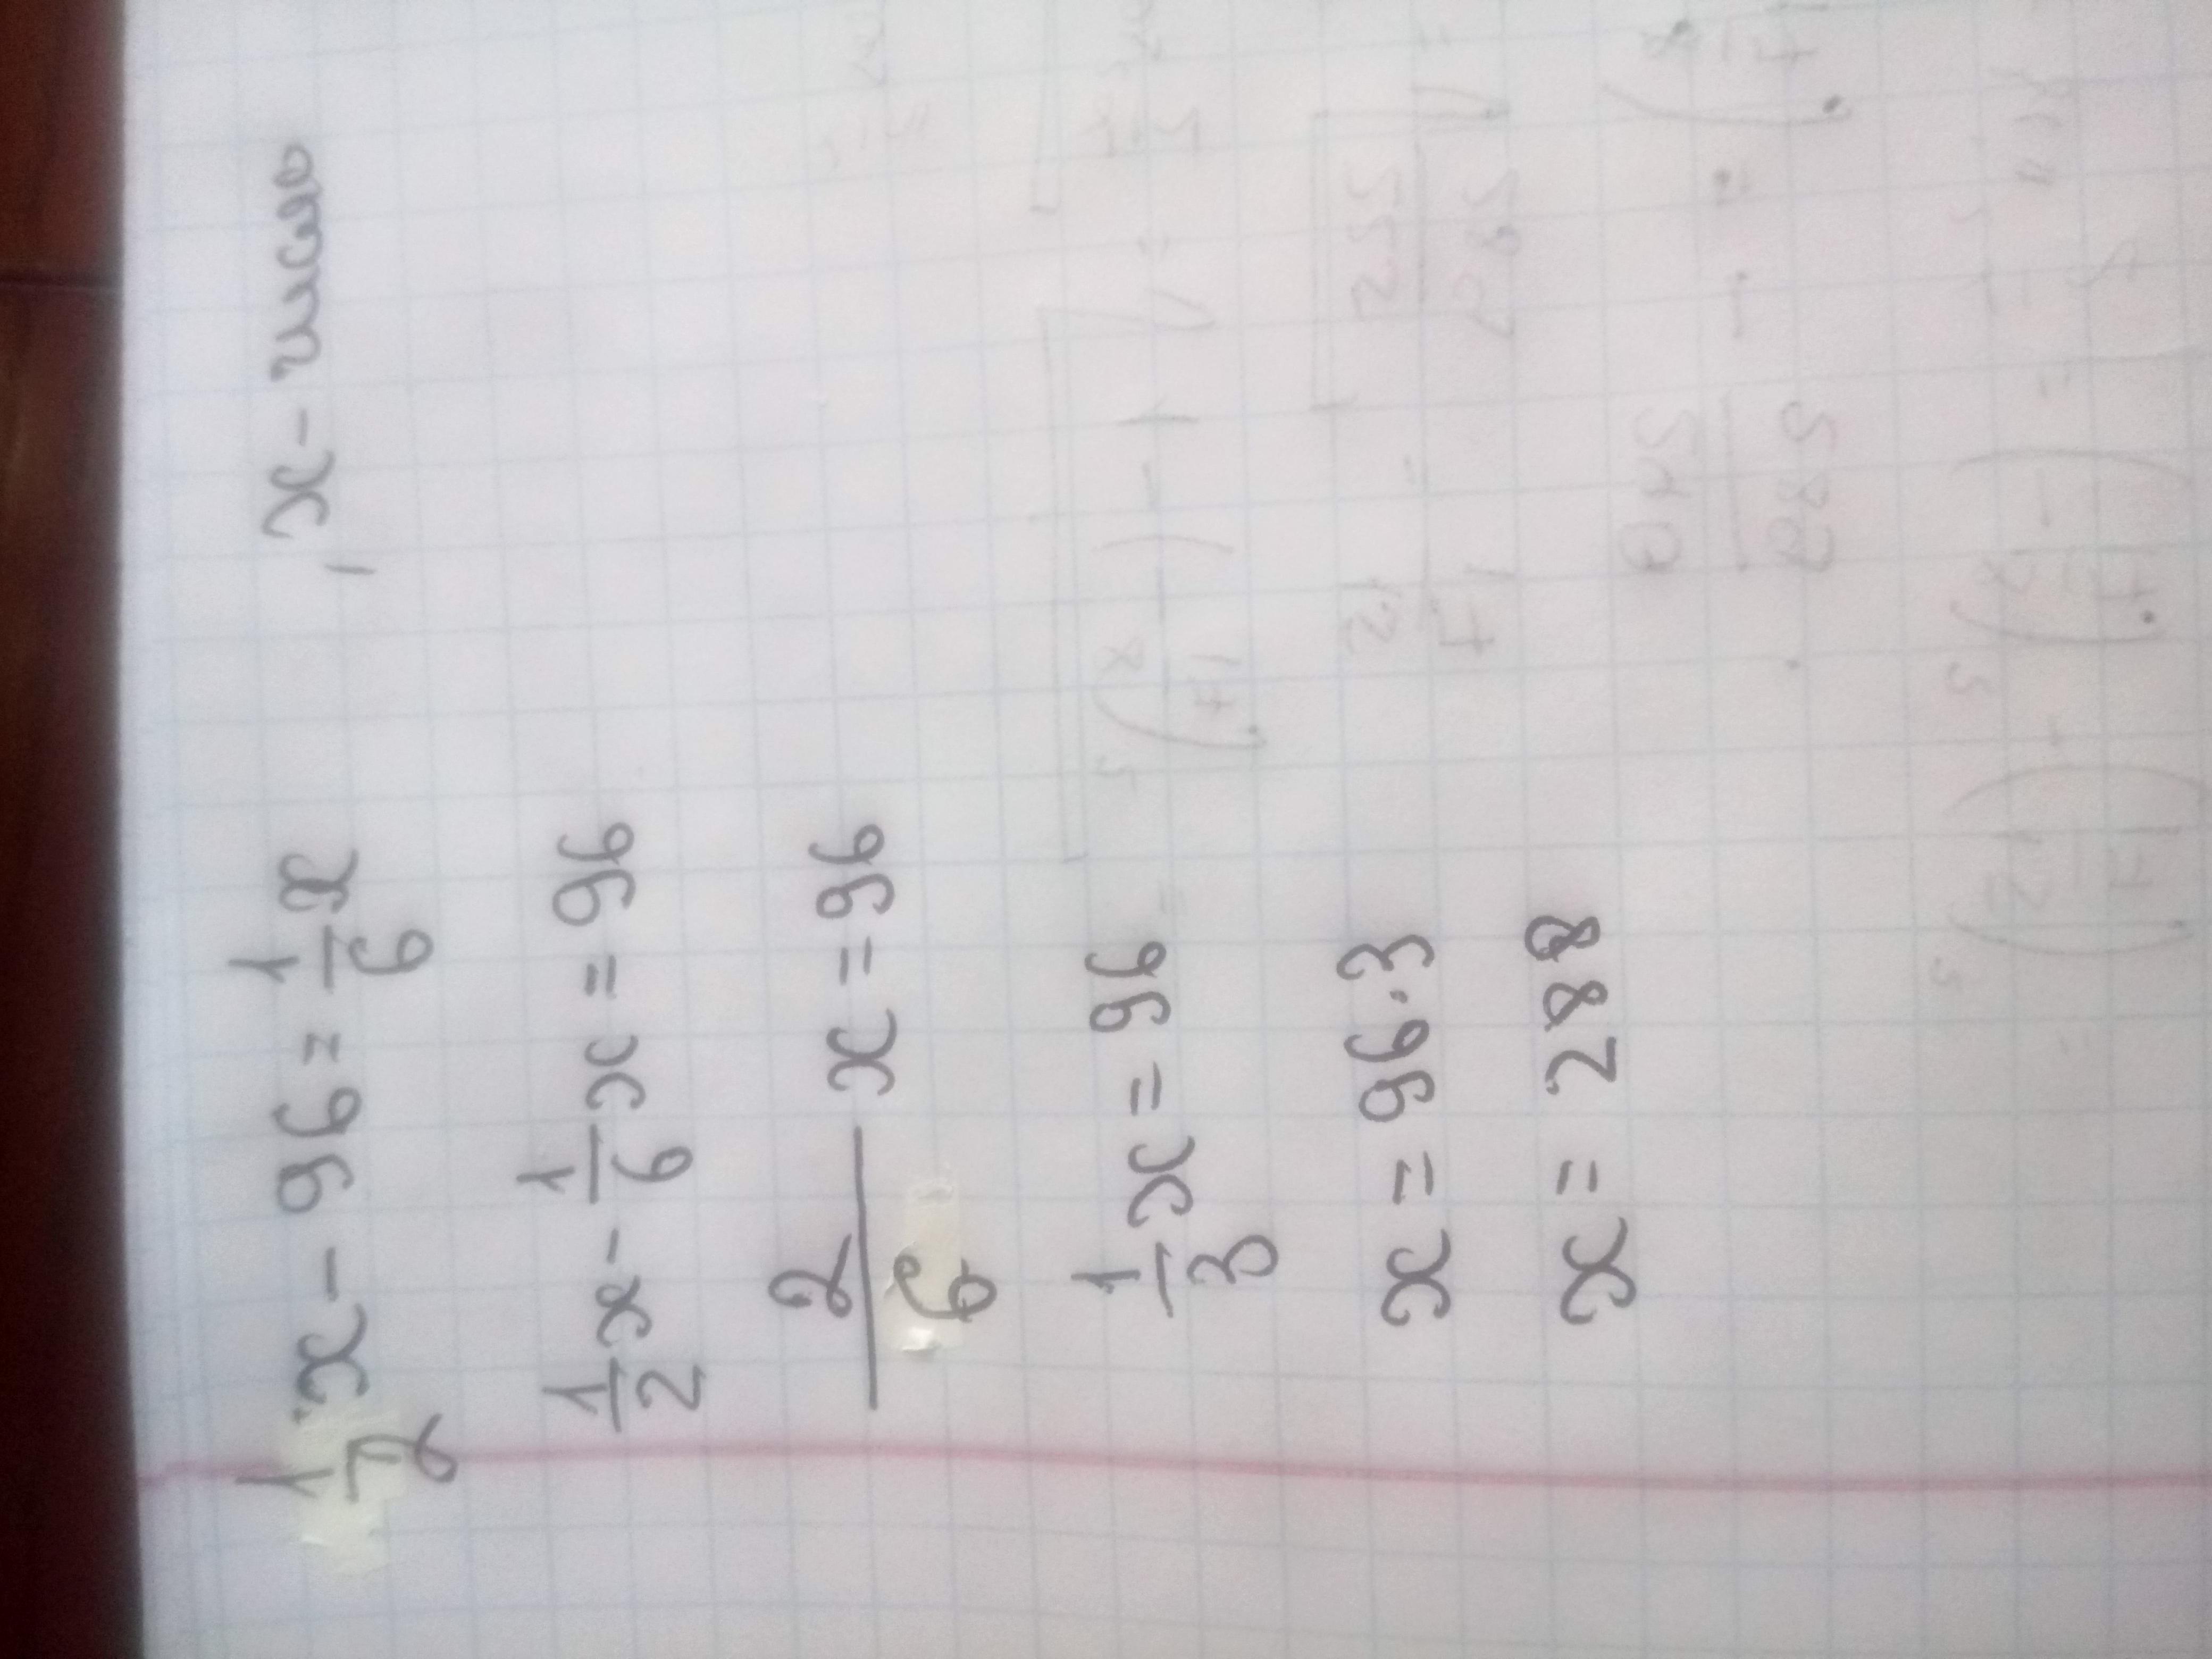 1/2 x - 96 = 1/6 x , x - число
1/2 x - 1/6 x = 96
2/6 x = 96
1/3 x = 96
x = 96 · 3
x = 288